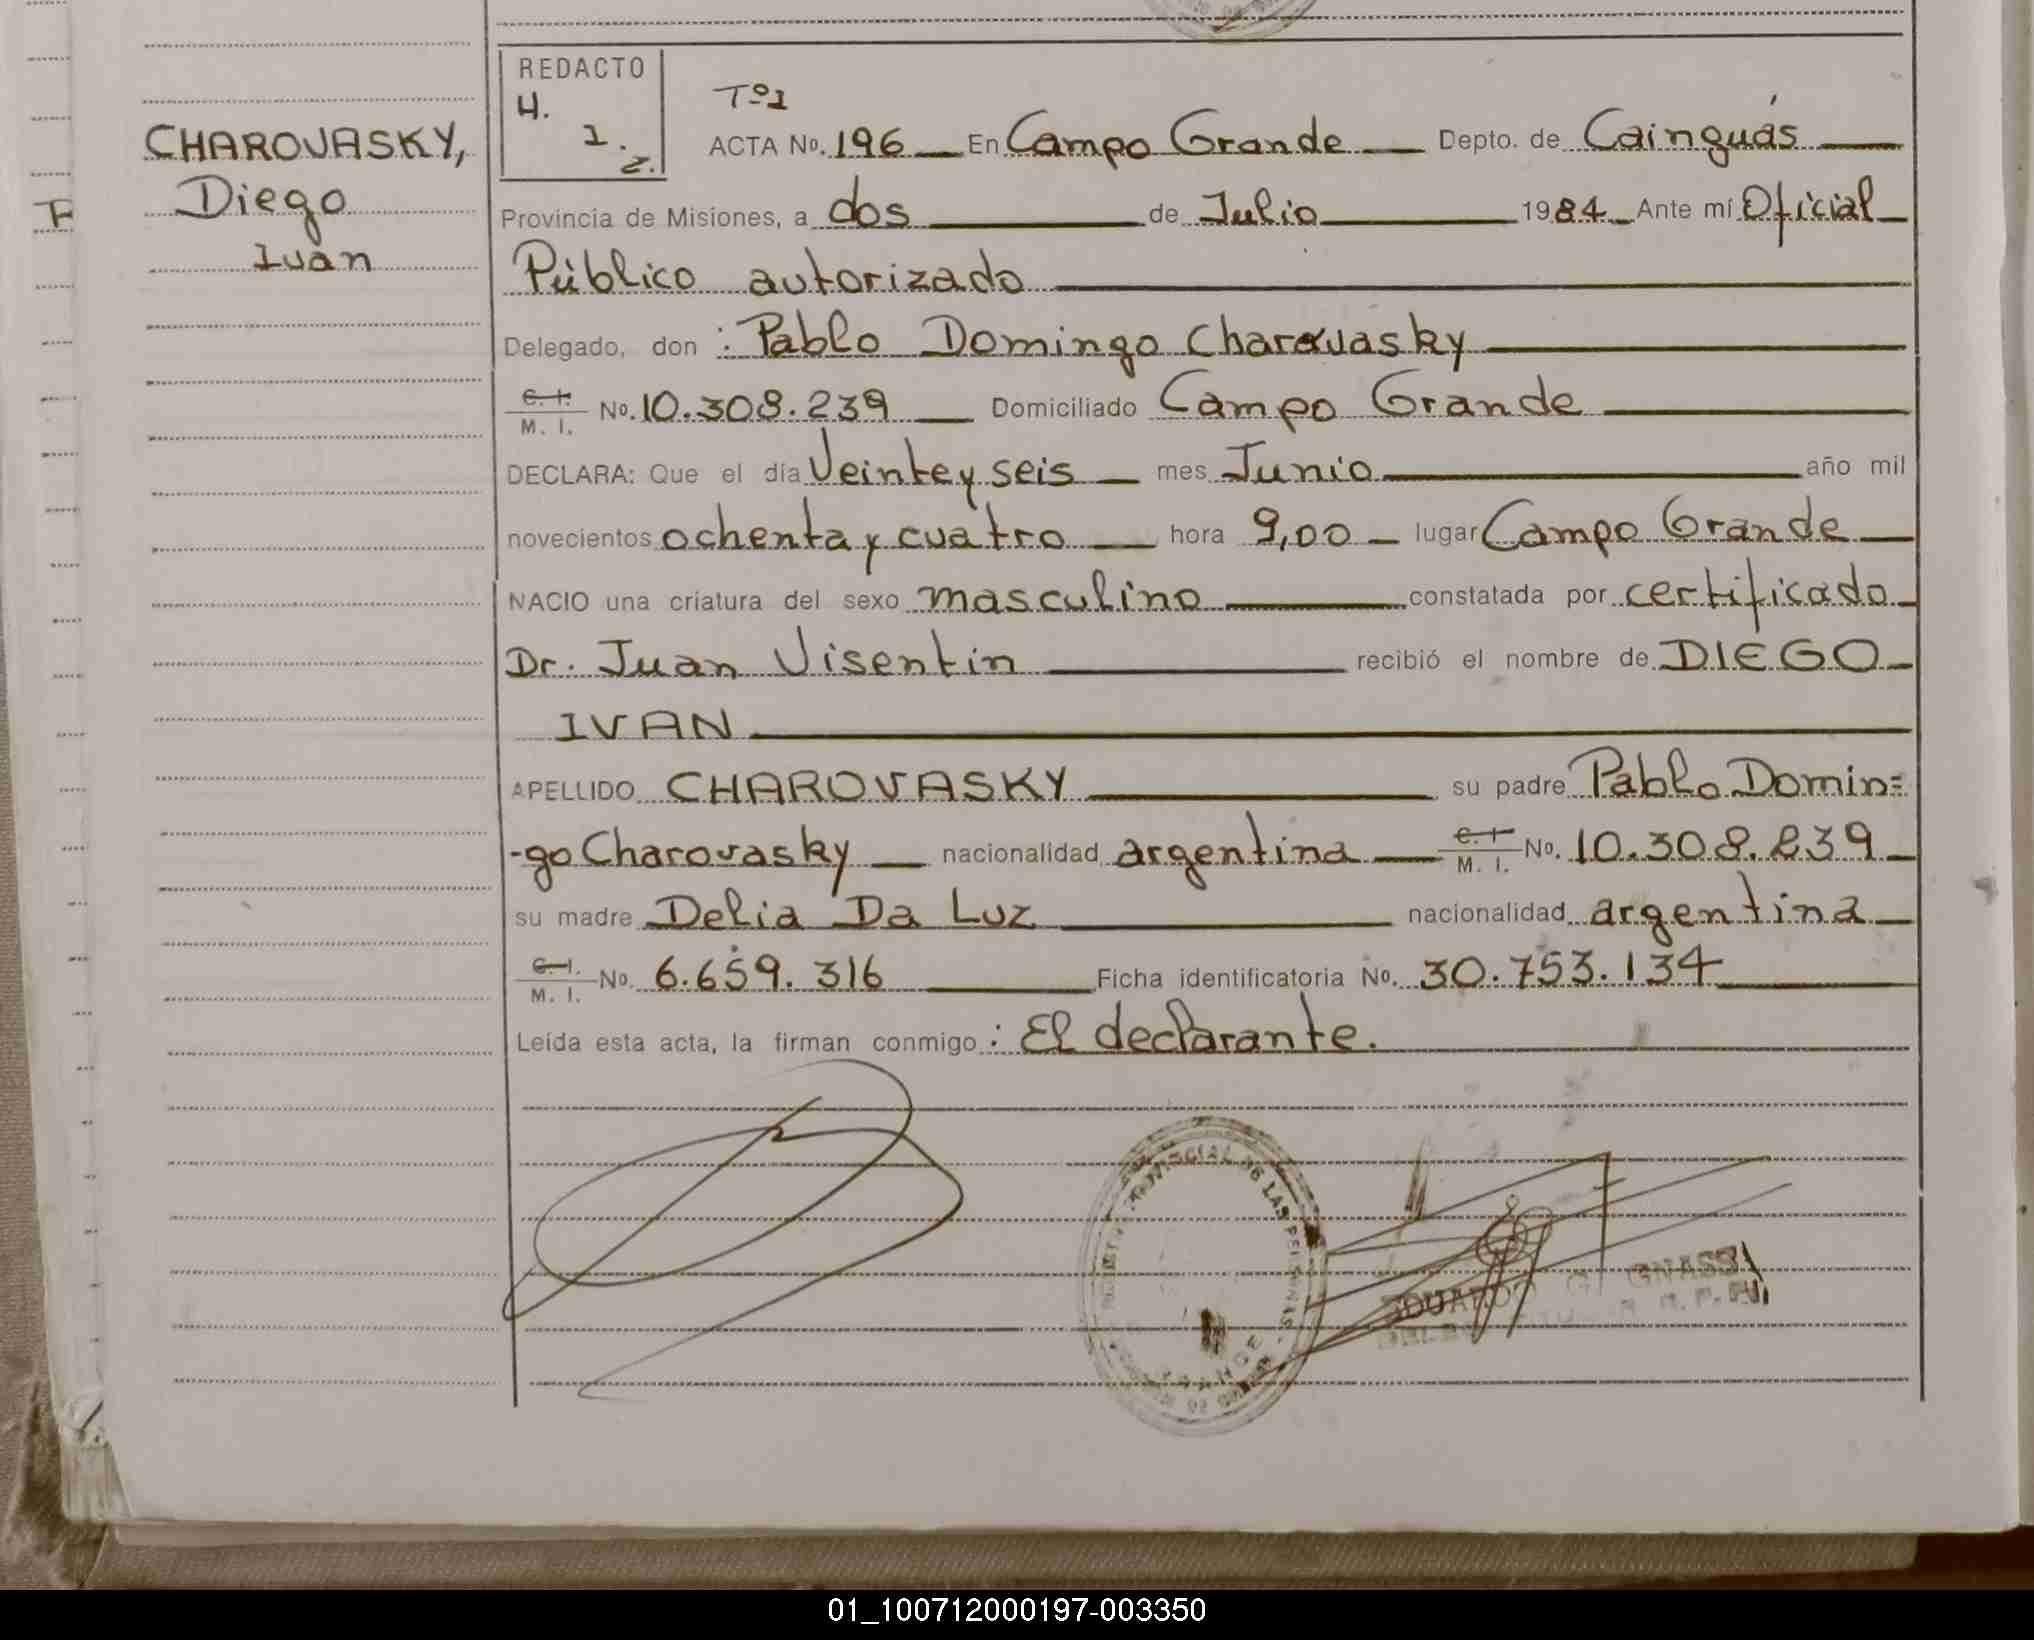 REDACTO
H.
1.
z.
Tº1
CHAROVASKY,
Diego
Ivan
ACTA No. 196 En Campo Grande Depto. de Cainguás
Provincia de Misiones, a dos de Julio 1984 Ante mí Oficial
Público autorizado
Delegado, don : Pablo Domingo Charovasky
C. I. M. I. No. 10.308.239 Domiciliado Campo Grande
DECLARA: Que el día Veinte y seis mes Junio año mil
novecientos ochenta y cuatro hora 9,00 lugar Campo Grande
NACIO una criatura del sexo masculino constatada por certificado
Dr. Juan Visentin recibió el nombre de DIEGO
IVAN
APELLIDO CHAROVASKY su padre Pablo Domin=
-go Charovasky nacionalidad argentina C. I. M. I. No. 10.308.239
su madre Delia Da Luz nacionalidad argentina
C. I. M. I. No. 6.659.316 Ficha identificatoria No. 30.753.134
Leída esta acta, la firman conmigo : El declarante.
PROVINCIAL DE LAS PERSONAS
EDUARDO GIGNASSI
01_100712000197-003350